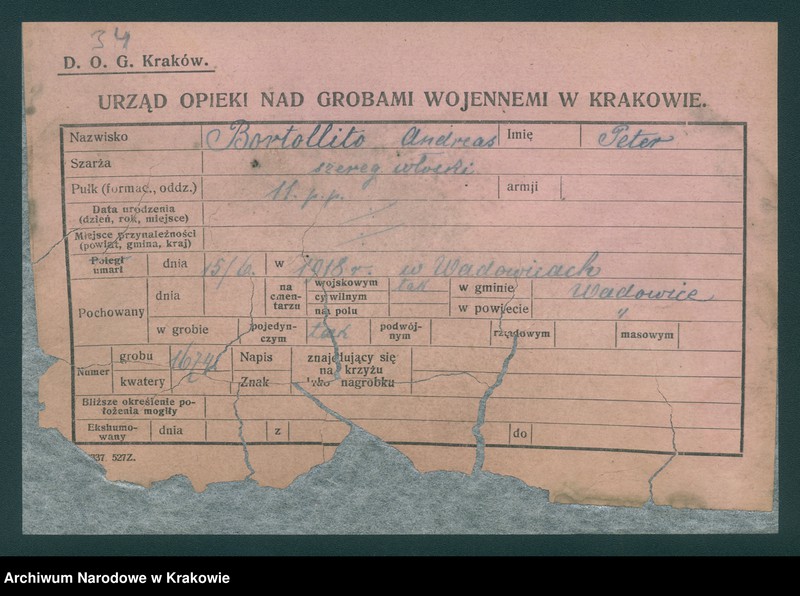 34
D. O. G. Kraków.
URZĄD OPIEKI NAD GROBAMI WOJENNEMI W KRAKOWIE.
Nazwisko Bortollito Andreas Imię Peter
Szarża szereg włoski
Pułk (formac., oddz.) 11. p.p. armji
Data urodzenia
(dzień, rok, miejsce)
Miejsce przynależności
(powiat, gmina, kraj)
Poległ
umarł dnia 15/6. w 1918 r. w Wadowicach
Pochowany dnia na cmen-tarzu wojskowym tak w gminie Wadowice
cywilnym
na polu w powiecie "
w grobie pojedyn-czym tak podwój-nym rzędowym masowym
Numer grobu Napis znajdujący się
na krzyżu
kwatery Znak nagrobku
Bliższe określenie po-
łożenia mogiły
Ekshumo-
wany dnia z do
337 527Z.
Archiwum Narodowe w Krakowie